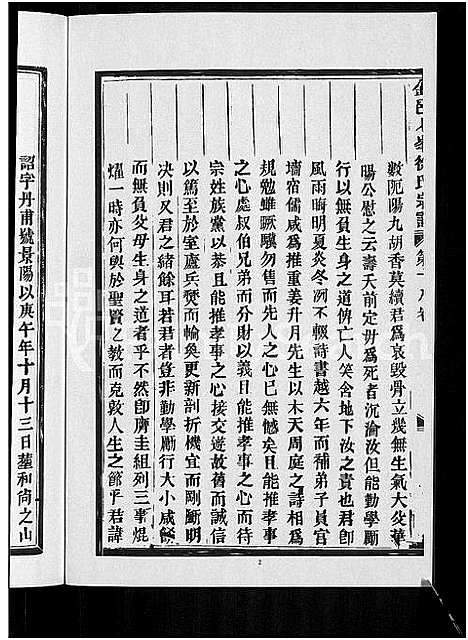 金邑八峯徐氏宗譜 第十九卷
數阨陽九胡香莫續君爲哀毀骨立幾無生氣大父華
陽公慰之云壽夭前定毋爲死者沉淪汝但能勤學勵
行以無負生身之道俾亡人笑含地下汝之貴也君卽
風雨晦明夏炎冬冽不輟詩書越六年而補弟子員宮
墻宿儒咸爲推重姜升月先生以木天周庭之詩式且
規勉雖驥勿售而先人之心已無憾矣且能推孝事
之心處叔伯兄弟而分財以義且能推孝事之心而待
宗姓族黨以恭且能推孝事之心以接交遊故舊而誠信
以篤至於室廬兵燹而輪奐更新剖折機宜而剛斷明
决則又君之緒餘耳若君者豈非勤學勵行大小咸餙
而無負父母生身之道者乎不然卽廣圭組列三事焜
燿一時亦何與於聖賢之教而克敦人生之節乎君諱
詔字丹甫號景陽以庚午年十月十三日塟和尙之山
2